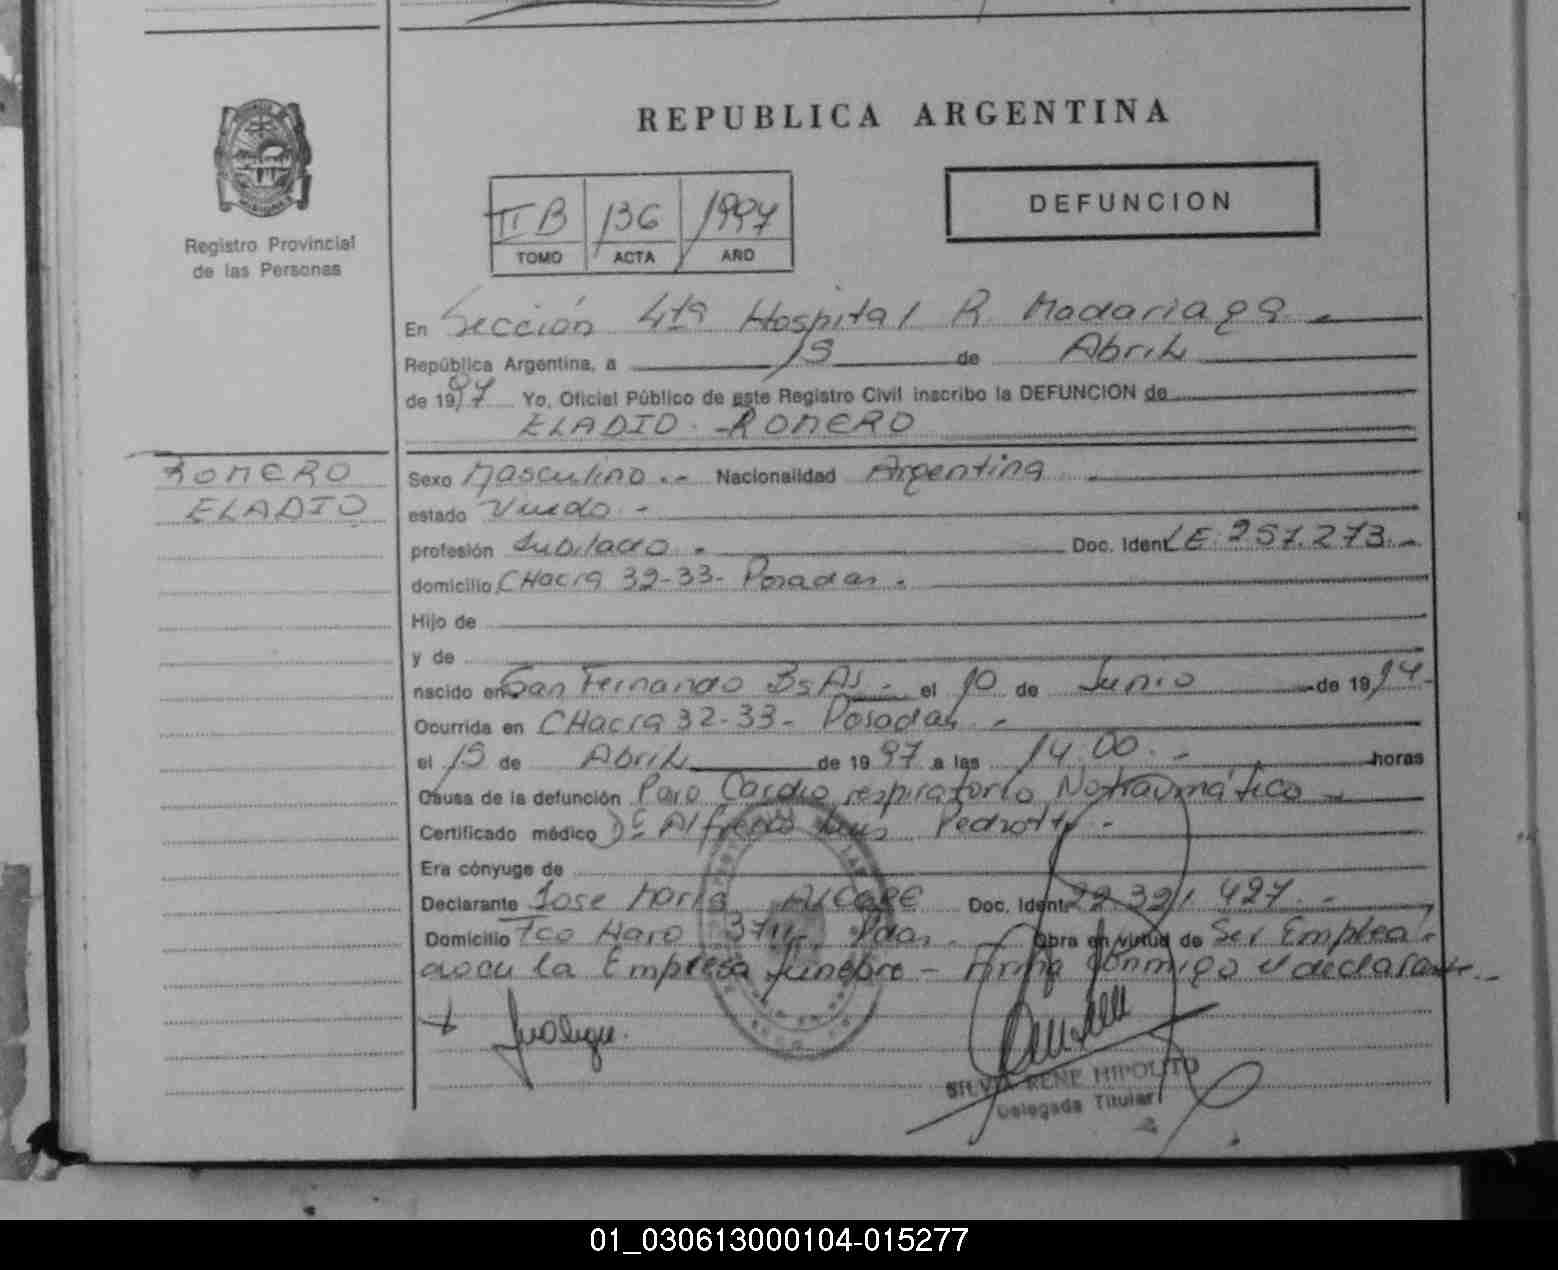 REPUBLICA ARGENTINA
Registro Provincial
de las Personas
II B 136 1997
TOMO ACTA AÑO
DEFUNCION
En Sección 4ta Hospital R Madariaga
República Argentina, a 15 de Abril
de 1997 Yo, Oficial Público de este Registro Civil inscribo la DEFUNCION de
ELADIO ROMERO
ROMERO
ELADIO
Sexo Masculino.- Nacionalidad Argentina
estado Viudo.-
profesión Jubilado. Doc. Ident. LE. 257.273.-
domicilio CHacra 32-33- Posadas.
Hijo de
y de
nacido en San Fernando Bs As.- el 10 de Junio de 1914.-
Ocurrida en CHacra 32-33- Posadas.-
el 15 de Abril de 1997 a las 14:00.- horas
Causa de la defunción Paro Cardio respiratorio No traumático
Certificado médico Dr Alfredo Luis Pedrotti.-
Era cónyuge de
Declarante Jose Maria Doc. Ident. 22.321.427.-
Domicilio Fco Haro Pdas.- Obra en virtud de Ser Emplea-
do en la Empresa funebre - Firma conmigo el declarante.-
SILVIA RENE HIPOLITO
Delegada Titular
01_030613000104-015277